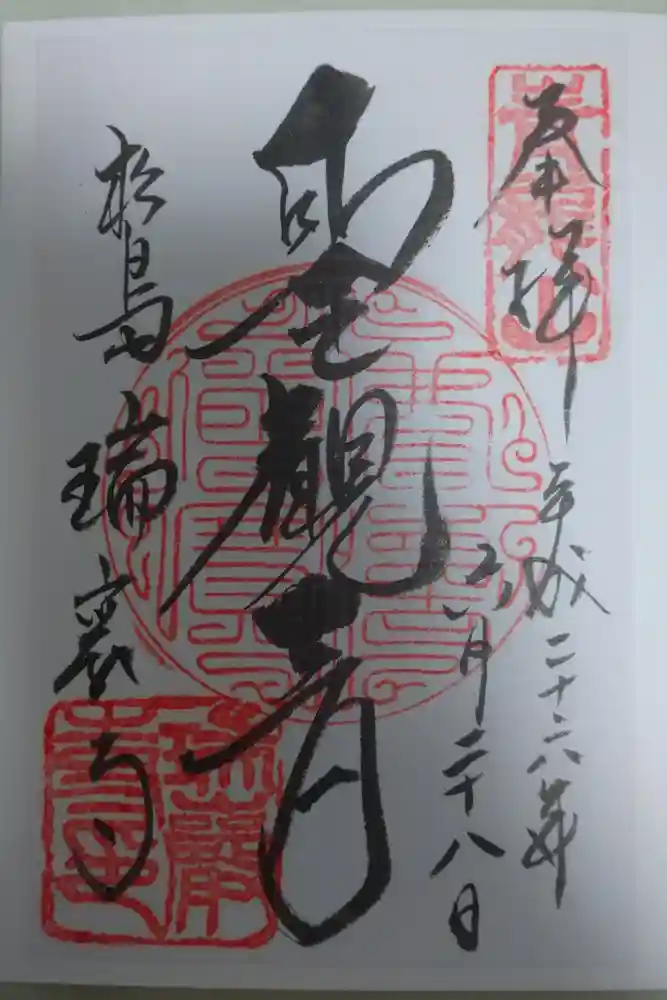 奉拝
平成二十六年
六月二十八日
聖観音
松島瑞巌寺
瑞巌
寺印